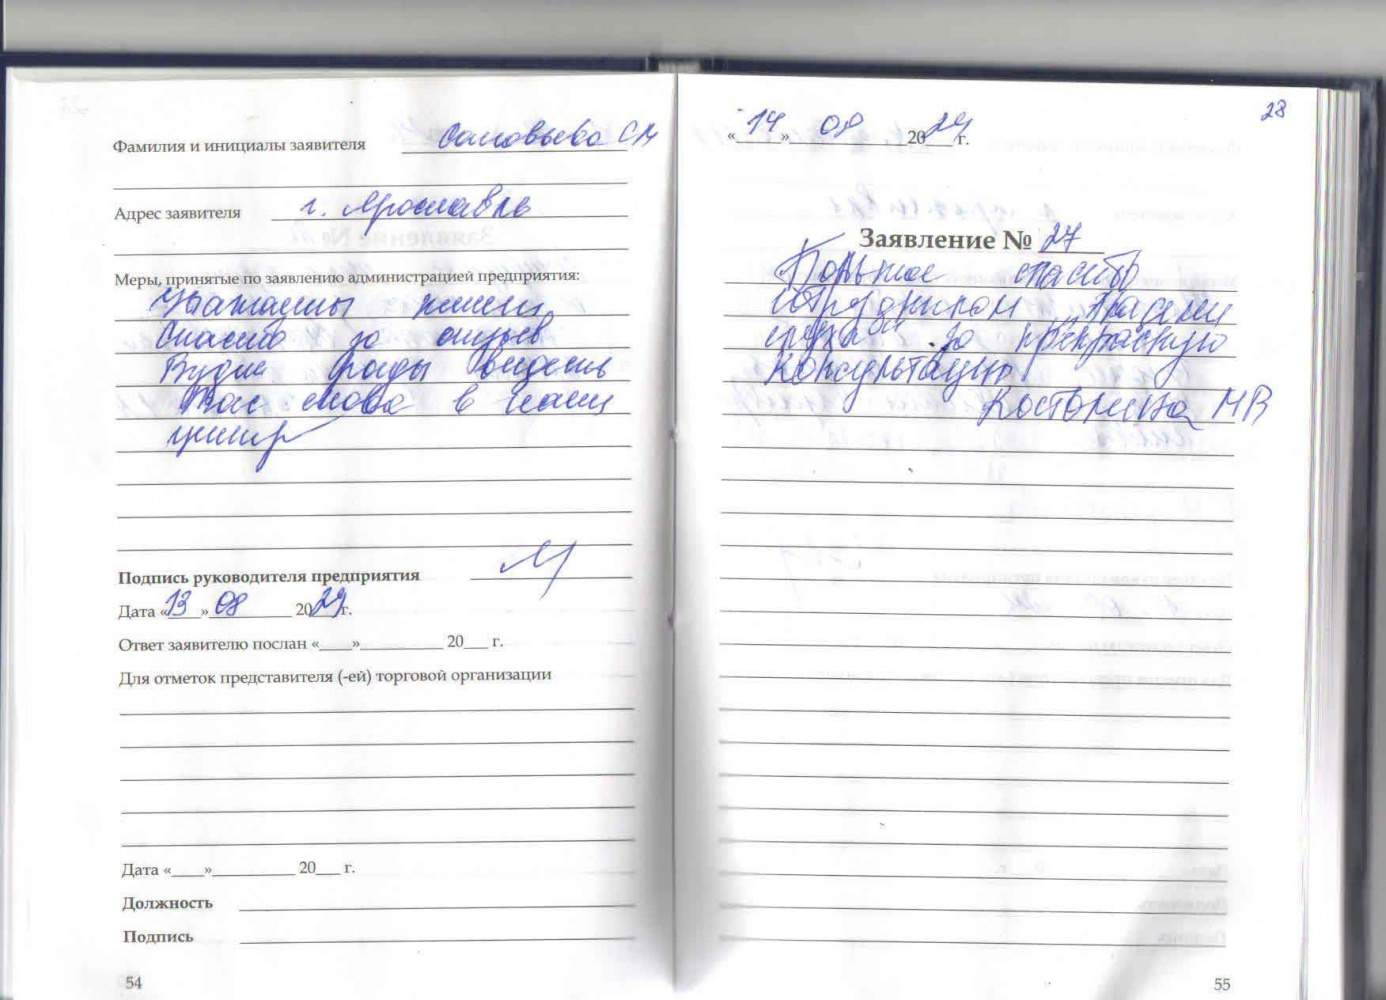 Фамилия и инициалы заявителя Соловьева СМ
Адрес заявителя г. Ярославль
Меры, принятые по заявлению администрацией предприятия:
Уважаемы
Спасибо за отзыв
Будем рады видеть
Вас снова в нашем
центре
Подпись руководителя предприятия
Дата «13» 08 2024 г.
Ответ заявителю послан «____»__________ 20___ г.
Для отметок представителя (-ей) торговой организации
Дата «____»__________ 20___ г.
Должность
Подпись
54
28
«14» 08 2024 г.
Заявление № 27
Большое спасибо
сотрудникам
слуха за прекрасную
консультацию!
МВ
55